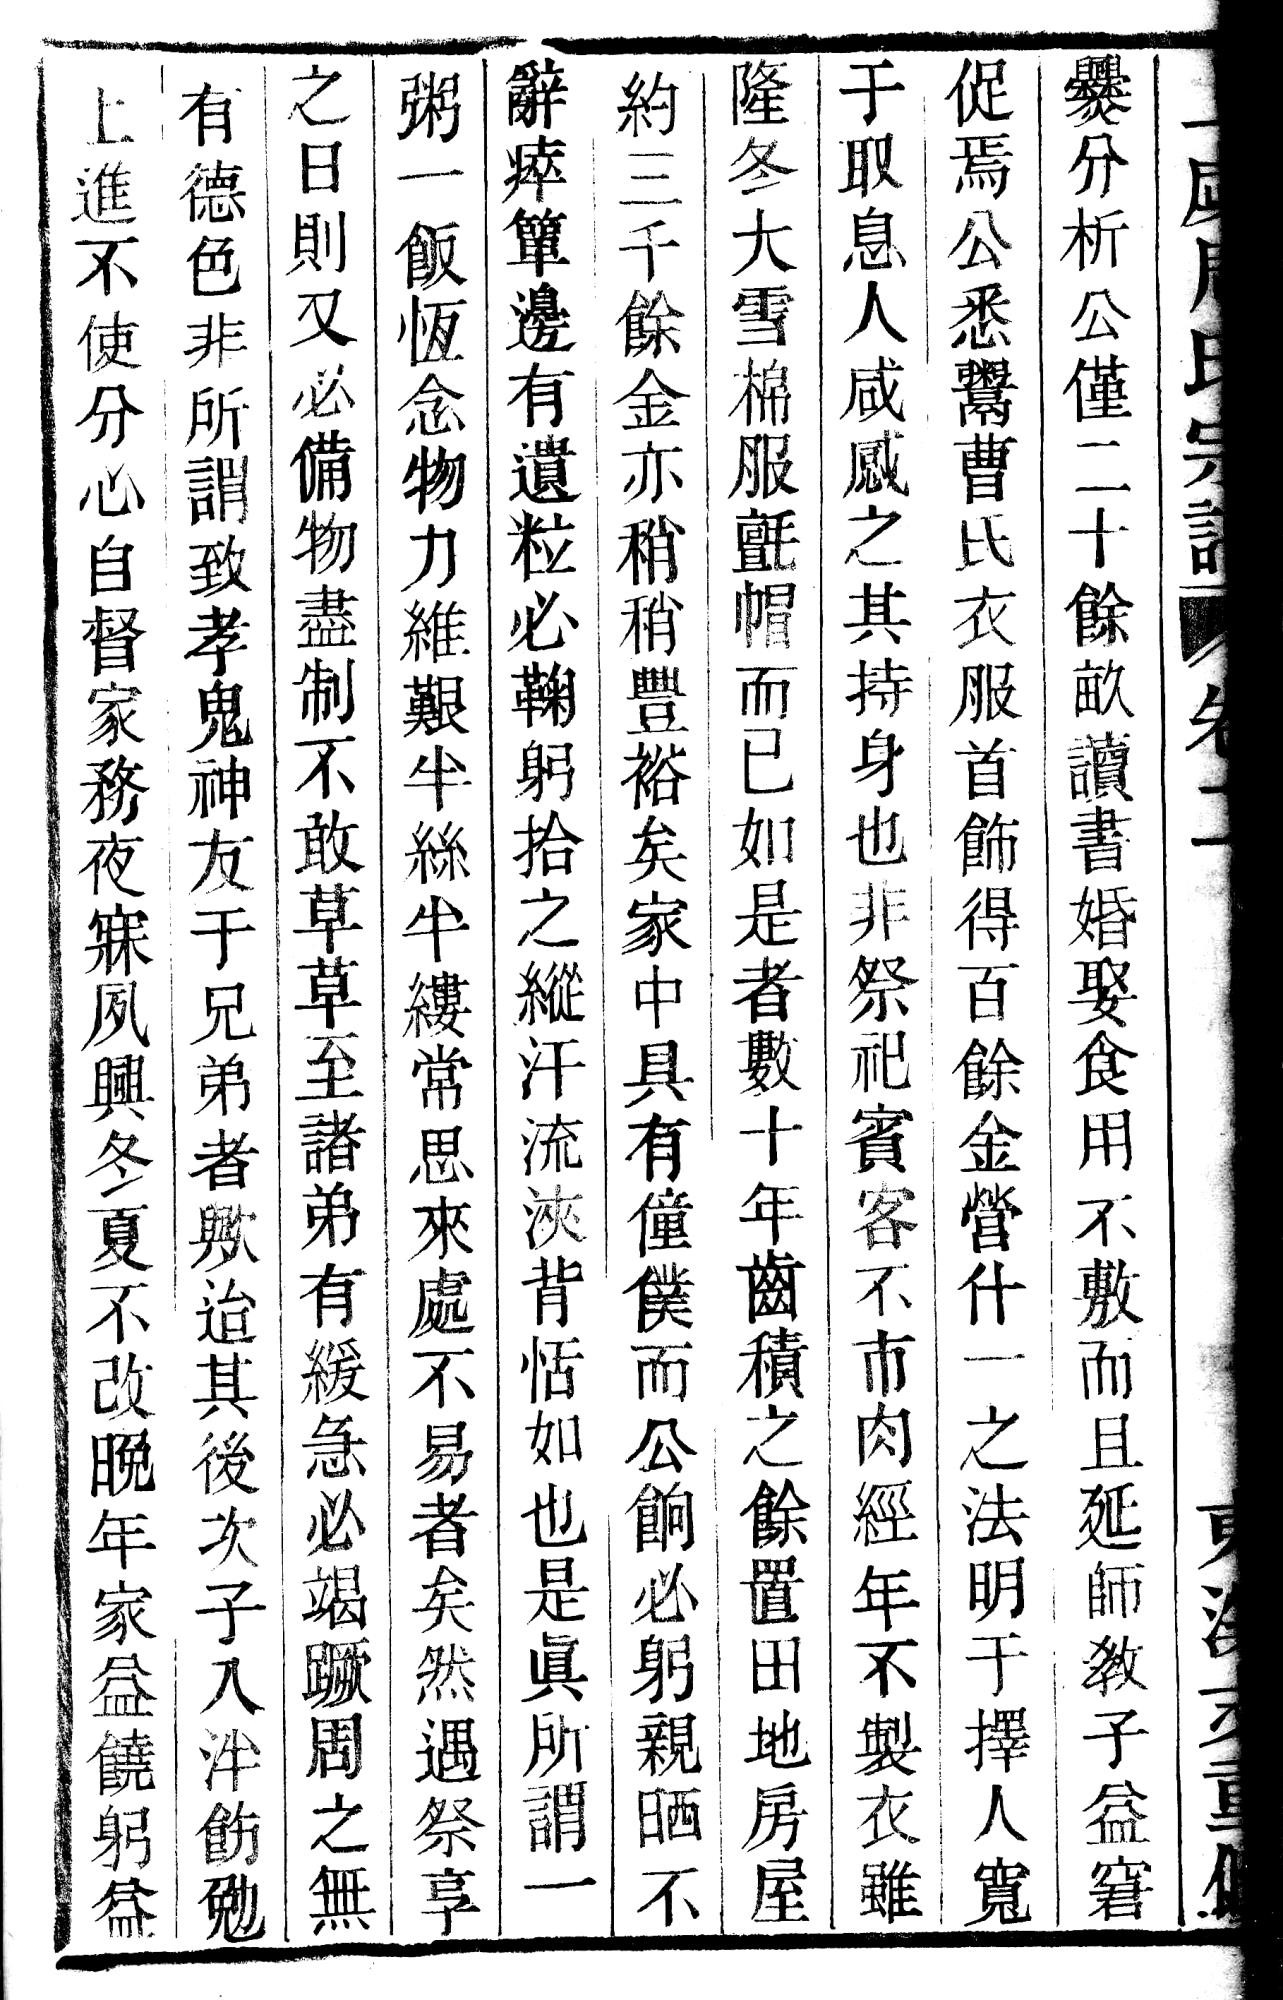 爨分析公僅二十餘畝讀書婚娶食用不敷而且延師教子益窘
促焉公悉鬻曹氏衣服首飾得百餘金營什一之法明于擇人寬
于取息人咸感之其持身也非祭祀賓客不市肉經年不製衣雖
隆冬大雪棉服氈帽而已如是者數十年齒積之餘置田地房屋
約三千餘金亦稍稍豐裕矣家中具有僮僕而公餉必躬親晒不
辭瘁簞邊有遺粒必鞠躬拾之縱汗流浹背恬如也是眞所謂一
粥一飯恆念物力維艱半絲半縷常思來處不易者矣然遇祭享
之日則又必備物盡制不敢草草至諸弟有緩急必竭蹶周之無
有德色非所謂致孝鬼神友于兄弟者歟迨其後次子入泮飭勉
上進不使分心自督家務夜寐夙興冬夏不改晩年家益饒躬益